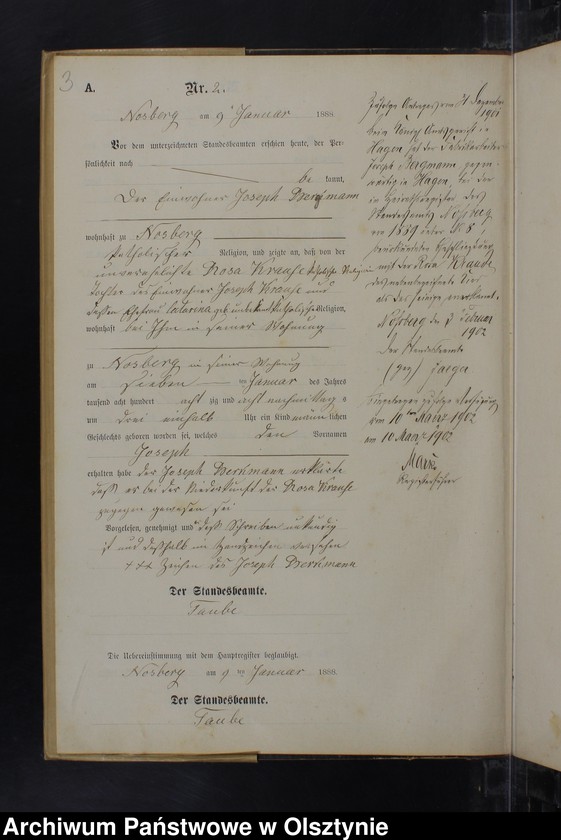 3
A.
Nr. 2.
Nosberg am 9t Januar 1888.
Vor dem unterzeichneten Standesbeamten erschien heute, der Per-
sönlichkeit nach
be kannt,
Der Einwohner Joseph Berkmann
wohnhaft zu Nosberg
katholischer Religion, und zeigte an, daß von der
unverehelichte Rosa Krause katholische Religion
Tochter des Einwohner Joseph Krause und
dessen Ehefrau Catarina geb unbekand katholische Religion,
wohnhaft bei Ihm in seiner Wohnung
zu Nosberg in seiner Wohnung
am sieben ten Januar des Jahres
tausend acht hundert acht zig und acht nachmittag s
um drei einhalb Uhr ein Kind männlichen
Geschlechts geboren worden sei, welches den Vornamen
Joseph
erhalten habe der Joseph Berkmann erklärte
daß er bei der Niederkunft der Rosa Krause
zugegen gewesen sei
Vorgelesen, genehmigt und daß Schreiben unkundig
ist und deßhalb mit Handzeichen versehen
+++ Zeichen des Joseph Berkmann
Der Standesbeamte.
Taube
Die Uebereinstimmung mit dem Hauptregister beglaubigt.
Nosberg am 9 ten Januar 1888.
Der Standesbeamte.
Taube
Zufolge Antrages vom 31 Dezember
1901
beim Königl Amtsgericht in
Hagen hat der Fabrikarbeiter
Joseph Bergmann
in Hagen, der
im Heirathsregister des
Standesamts Noßberg
pro 1889 unter No 8
Eheschließung
mit der Rosa Krause
als das seinige anerkannt.
Noßberg den 3 Februar
1902
Der Standesbeamte
(gez) Jaeger
Eingetragen zufolge Verfügung
vom 10ten März 1902
am 10 März 1902
Archiwum Państwowe w Olsztynie